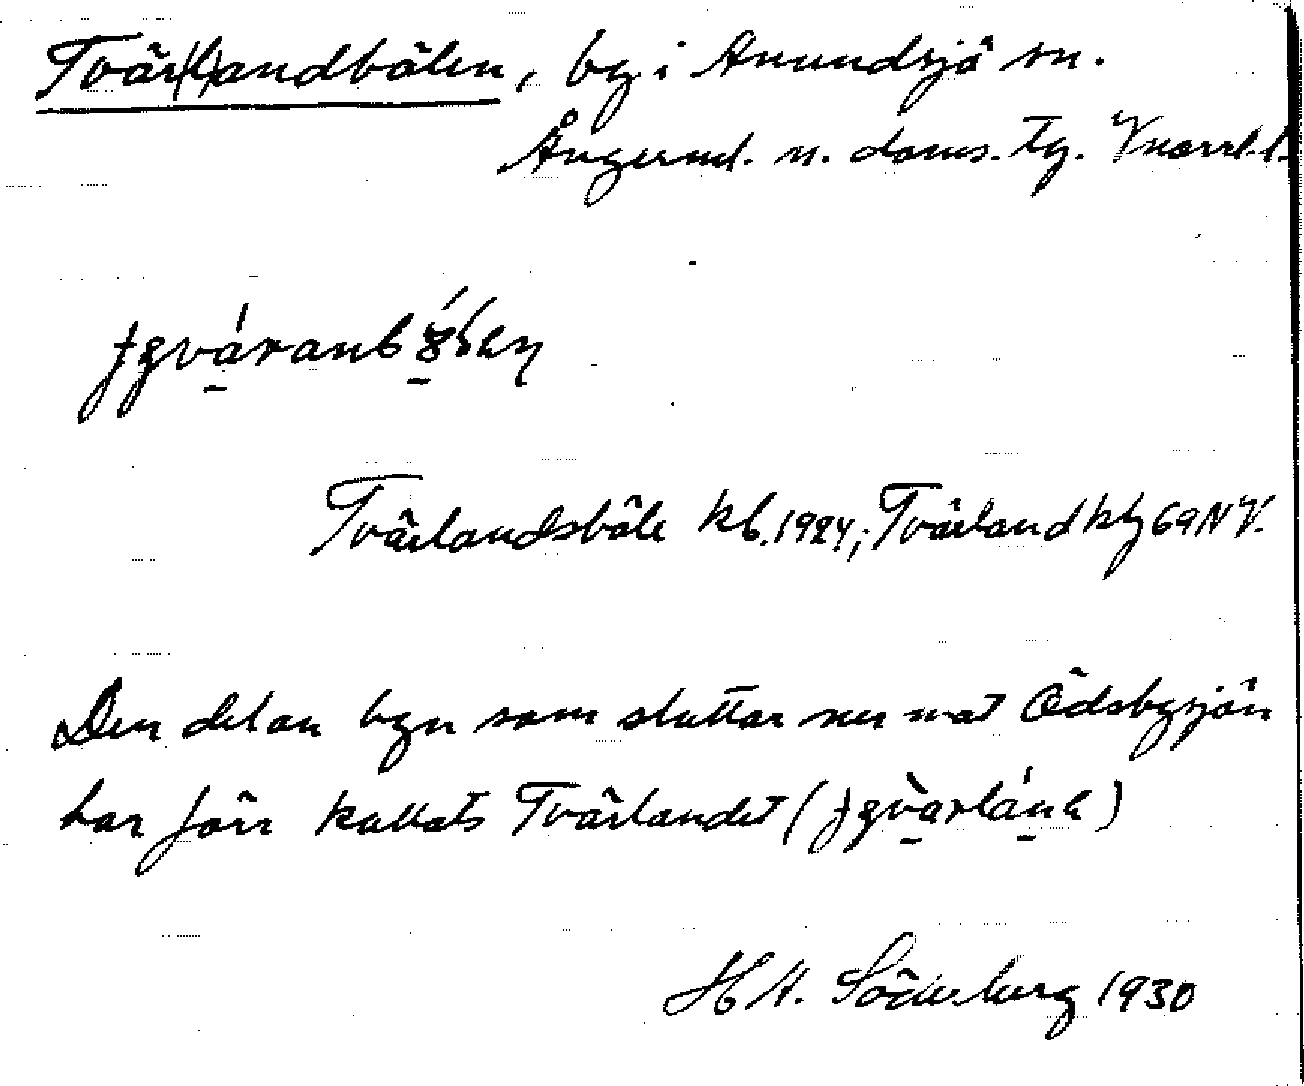 Tvär(l)andbölen, by i Anundsjö sn.
Ångerml. n. doms. tg. Vnorrl. l.
Tvärlandsböle kb. 1924; Tvärland ktg 69NV.
Den del av byn som sluttar ner mot Ödsbysjön
har förr kallats Tvärlandet
H W. Söderberg 1930